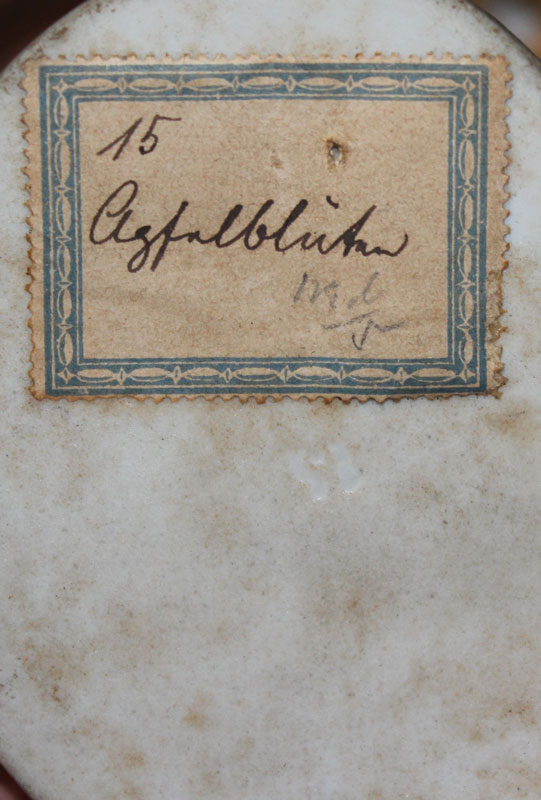 15
Apfelblüten